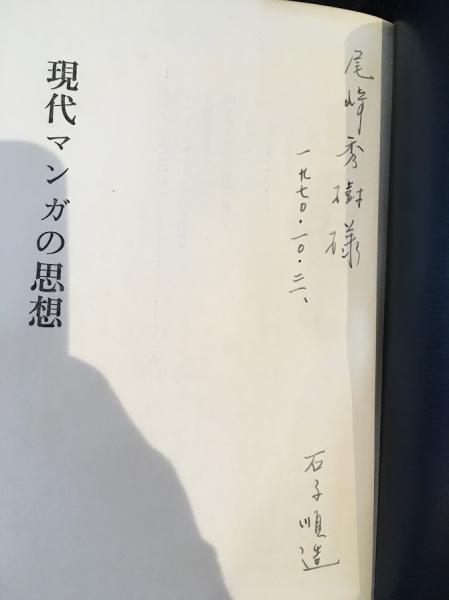 尾崎秀樹様
一九七〇・一〇・三一、
石子順造
現代マンガの思想